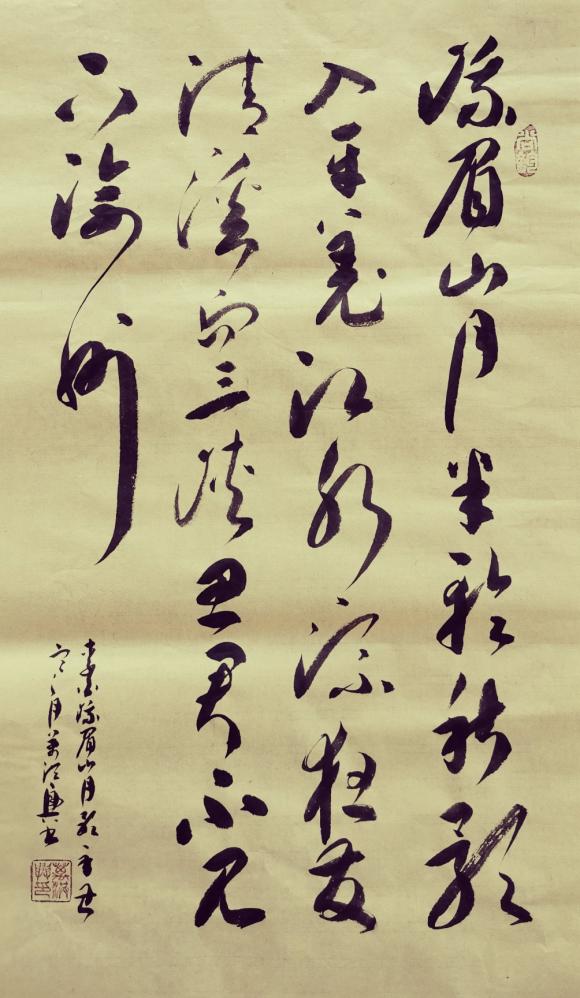 峨眉山月半輪秋影
入平羌江水流夜發
清溪向三峽思君不見
下渝州
李白峨眉山月歌
月
書